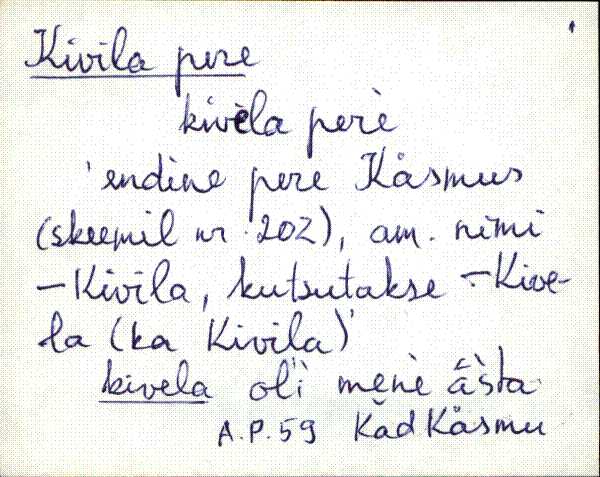 Kivila pere
kivèla perè
'endine pere Käsmus
(skeemil nr. 202), am. nimi
– Kivila, kutsutakse – Kive-
la (ka Kivila)'
kivela ol'i menè ästa
A.P.59 Kad Käsmu